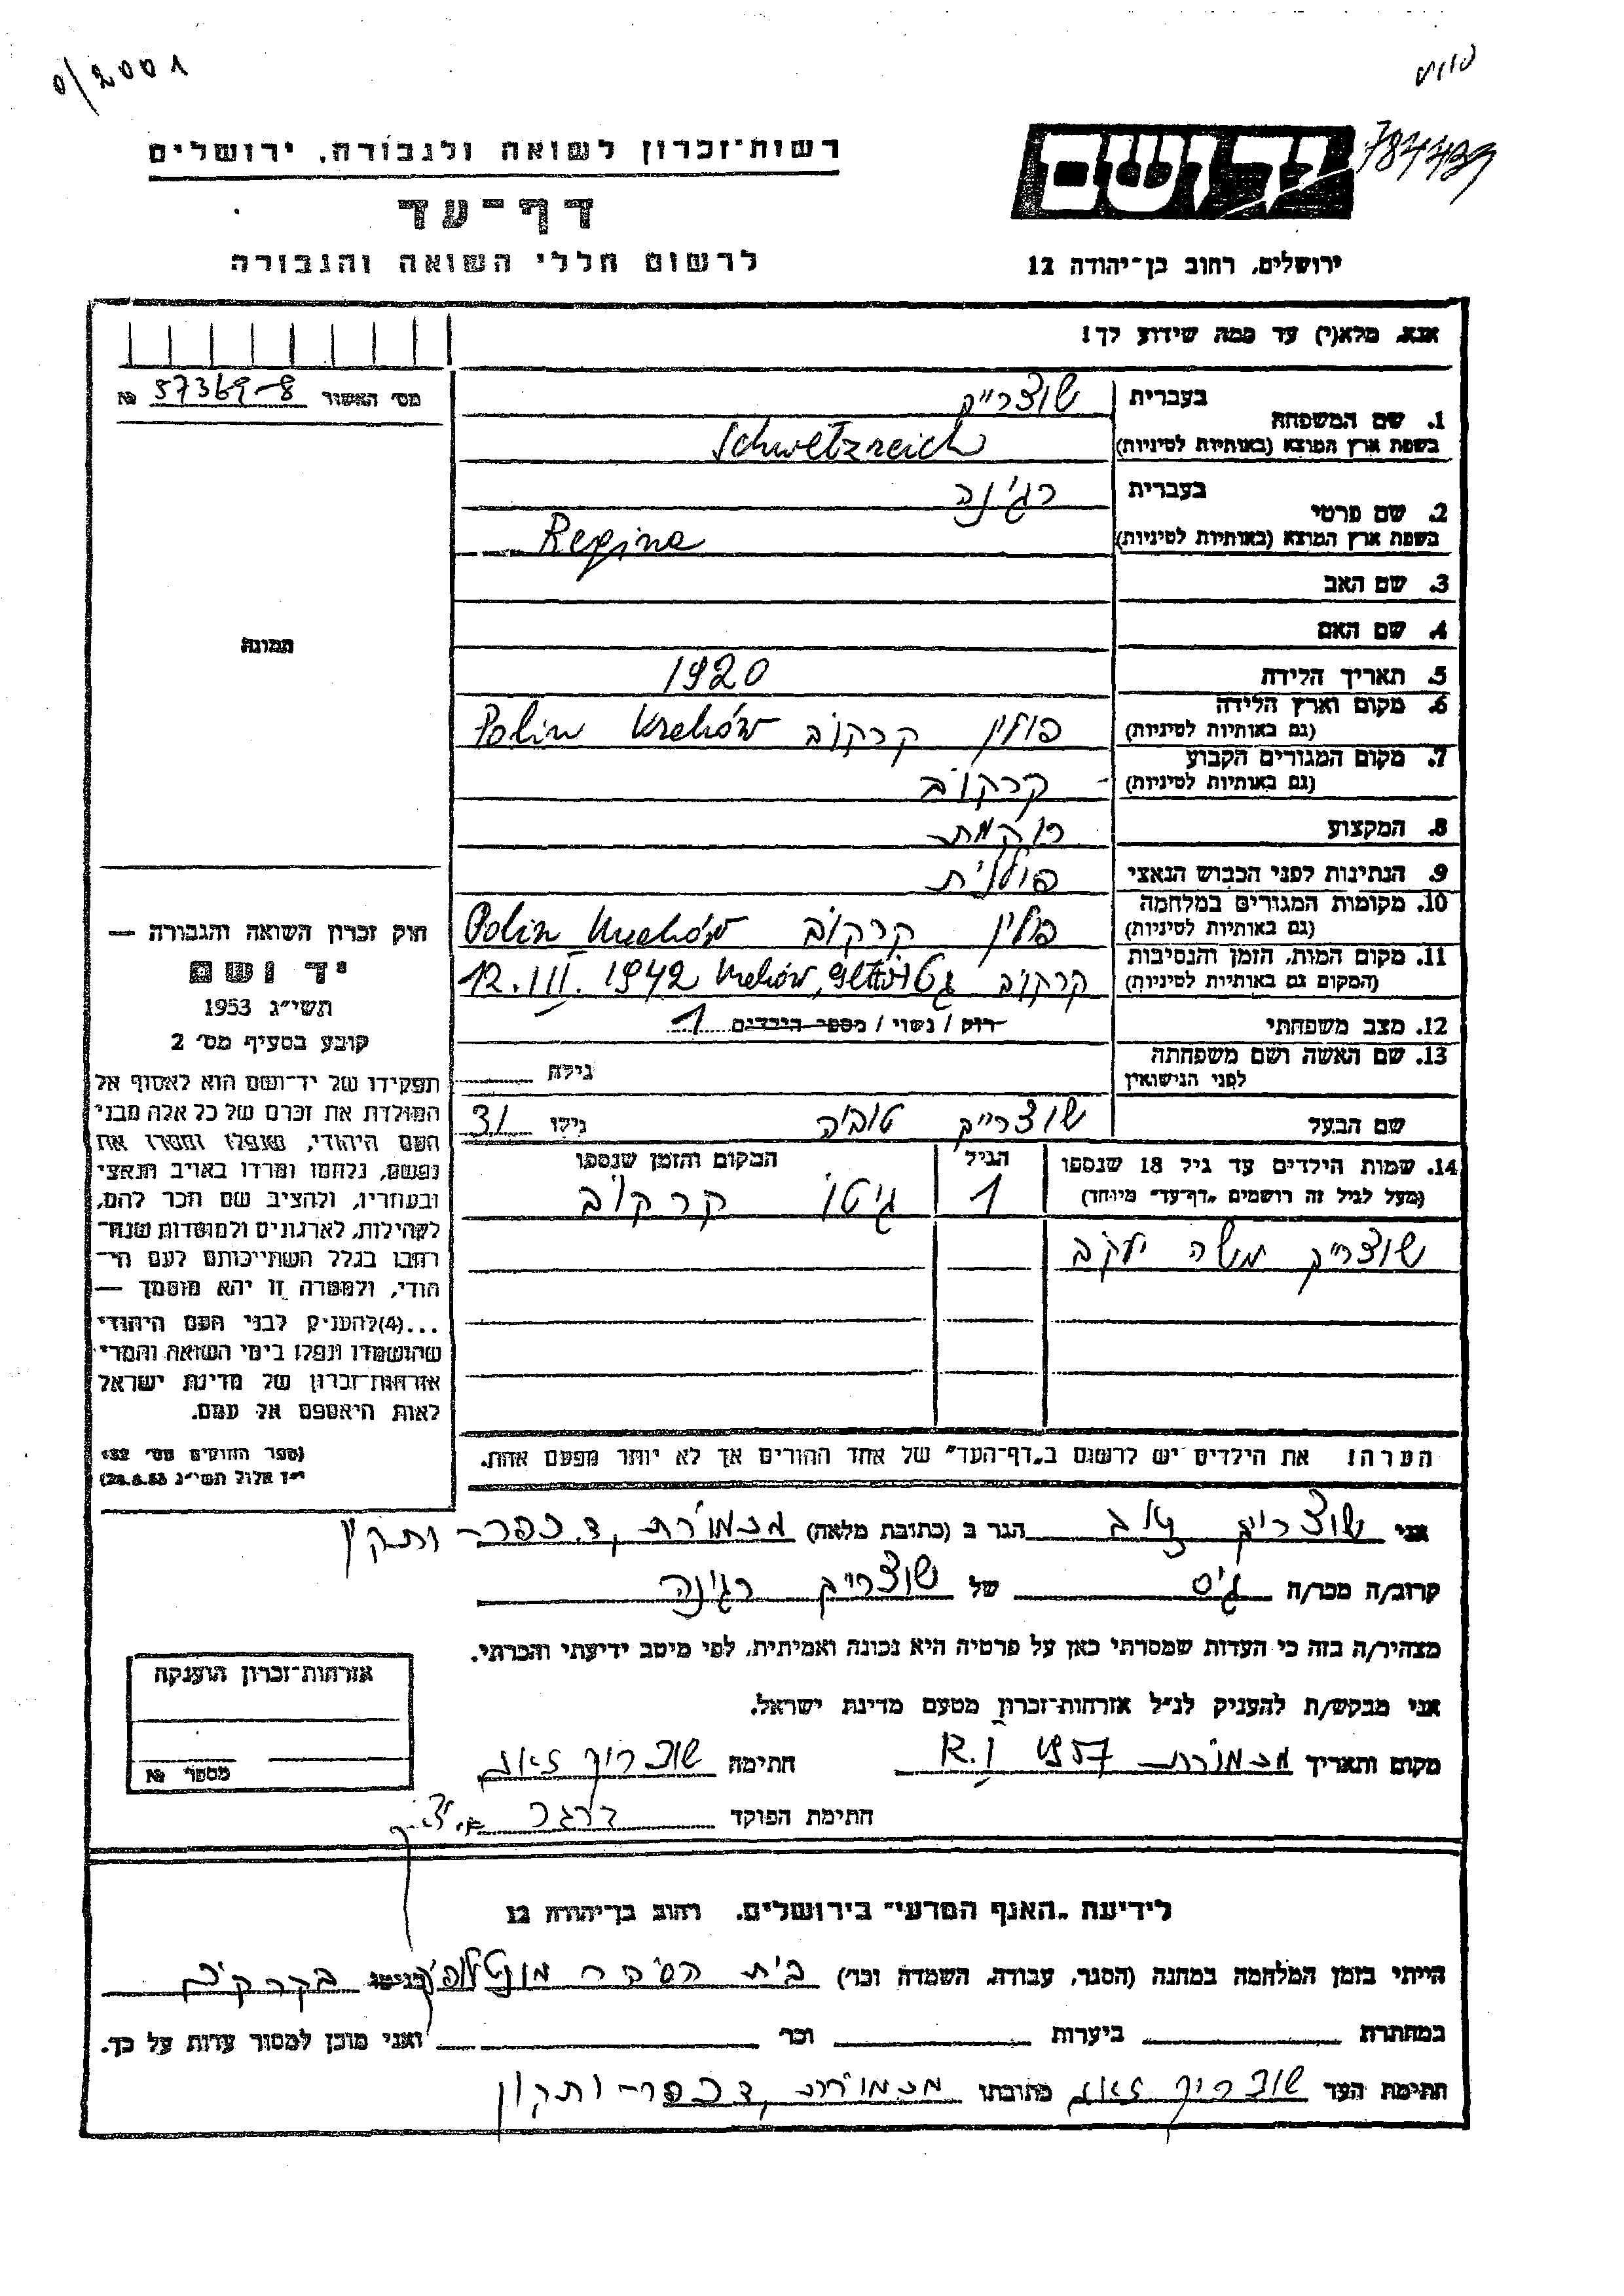 0/2001
784429
רשות־זכרון לשואה ולגבורה, ירושלים
דף־עד
לרשום חללי השואה והגבורה
ירושלים, רחוב בן־יהודה 12
אנא, מלא(י) עד כמה שידוע לך!
מס׳ האשור 57369-8 №
1. שם המשפחה בעברית שוצרייק
בשפת ארץ המוצא (באותיות לטיניות) Schwetzreich
2. שם פרטי בעברית רגינה
בשפת ארץ המוצא (באותיות לטיניות) Regina
3. שם האב
4. שם האם
תמונה
5. תאריך הלידה 1920
6. מקום וארץ הלידה (גם באותיות לטיניות) פולין קרקוב Polin Kraków
7. מקום המגורים הקבוע (גם באותיות לטיניות) קרקוב
8. המקצוע רוקמת
9. הנתינות לפני הכבוש הנאצי פולנית
10. מקומות המגורים במלחמה (גם באותיות לטיניות) פולין קרקוב Polin Kraków
11. מקום המות, הזמן והנסיבות (המקום גם באותיות לטיניות) קרקוב 12.III.1942 Kraków,
12. מצב משפחתי רווק / נשוי / מספר הילדים 1
13. שם האשה ושם משפחתה לפני הנישואין גילה
שם הבעל שוצרייק טוביה גילו 31
14. שמות הילדים עד גיל 18 שנספו הגיל המקום והזמן שנספו
(מעל לגיל זה רושמים „דף־עד״ מיוחד) 1 גיטו קרקוב
שוצרייק משה יעקב
חוק זכרון השואה והגבורה —
יד ושם
תשי״ג 1953
קובע בסעיף מס׳ 2
תפקידו של יד־ושם הוא לאסוף אל
המולדת את זכרם של כל אלה מבני
העם היהודי, שנפלו ומסרו את
נפשם, נלחמו ומרדו באויב הנאצי
ובעוזריו, ולהציב שם וזכר להם,
לקהילות, לארגונים ולמוסדות שנח־
רבו בגלל השתייכותם לעם הי־
הודי, ולמטרה זו יהא מוסמך —
...(4) להעניק לבני העם היהודי
שהושמדו ונפלו בימי השואה והמרי
אזרחות־זכרון של מדינת ישראל
לאות היאספם אל עמם.
(ספר החוקים מס׳ 132
י״ז אלול תשי״ג 28.8.53)
הערה! את הילדים יש לרשום ב„דף־העד״ של אחד ההורים אך לא יותר מפעם אחת.
אני שוצרייק הגר ב (כתובת מלאה) מכמורת, ד. כפר־ותקין
קרוב/ה מכר/ה גיס של שוצרייק רגינה
מצהיר/ה בזה כי העדות שמסרתי כאן על פרטיה היא נכונה ואמיתית, לפי מיטב ידיעתי והכרתי.
אני מבקש/ת להעניק לנ״ל אזרחות־זכרון מטעם מדינת ישראל.
מקום ותאריך מכמורת 1957 חתימה
חתימת הפוקד
אזרחות־זכרון הוענקה
מספר №
לידיעת „האגף המדעי״ בירושלים, רחוב בן־יהודה 12
הייתי בזמן המלחמה במחנה (הסגר, עבודה, השמדה וכד׳) בית הסוהר בגיטו בקרקוב
במחתרת ביערות וכד׳ ואני מוכן למסור עדות על כך.
חתימת העד כתובתו מכמורת, ד. כפר־ותקין